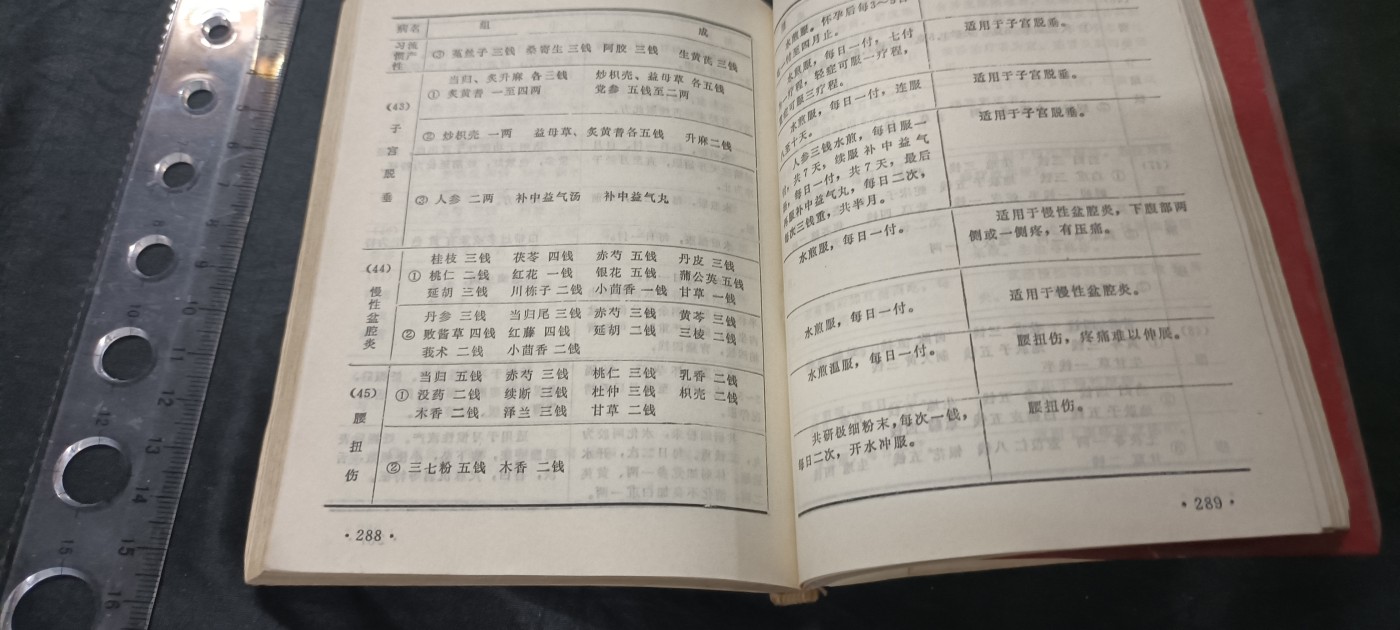 病名 组 成
习惯性流产 ③ 菟丝子 三钱 桑寄生 三钱 阿胶 三钱 生黄芪 三钱
(43)
子宫脱垂
当归、炙升麻 各三钱 炒枳壳、益母草 各五钱
① 炙黄芪 一至四两 党参 五钱至二两
② 炒枳壳 一两 益母草、炙黄芪各五钱 升麻二钱
③ 人参 二两 补中益气汤 补中益气丸
(44)
慢性盆腔炎
桂枝 三钱 茯苓 四钱 赤芍 五钱 丹皮 三钱
① 桃仁 二钱 红花 一钱 银花 五钱 蒲公英 五钱
延胡 三钱 川栋子 二钱 小茴香 一钱 甘草 一钱
丹参 三钱 当归尾 三钱 赤芍 三钱 黄芩 三钱
② 败酱草 四钱 红藤 四钱 延胡 二钱 三棱 二钱
莪术 二钱 小茴香 二钱
(45)
腰扭伤
当归 五钱 赤芍 三钱 桃仁 三钱 乳香 二钱
① 没药 二钱 续断 三钱 杜仲 三钱 枳壳 二钱
木香 二钱 泽兰 三钱 甘草 二钱
② 三七粉 五钱 木香 二钱
·288·
水煎服。怀孕后每3~5日
一付至四月止。
水煎服,每日一付,七付
为一疗程,轻症可服一疗程,
可服三疗程。
适用于子宫脱垂。
水煎服,每日一付,连服
至十天。
适用于子宫脱垂。
人参三钱水煎,每日服一
共7天,续服补中益气
每日一付,共7天,最后
服补中益气丸,每日二次,
每次三钱重,共半月。
适用于子宫脱垂。
水煎服,每日一付。
适用于慢性盆腔炎,下腹部两
侧或一侧疼,有压痛。
水煎服,每日一付。
适用于慢性盆腔炎。
水煎温服,每日一付。
腰扭伤,疼痛难以伸展。
共研极细粉末,每次一钱,
每日二次,开水冲服。
腰扭伤。
·289·
6
7
8
9
10
11
12
12
13
14
15
15
16